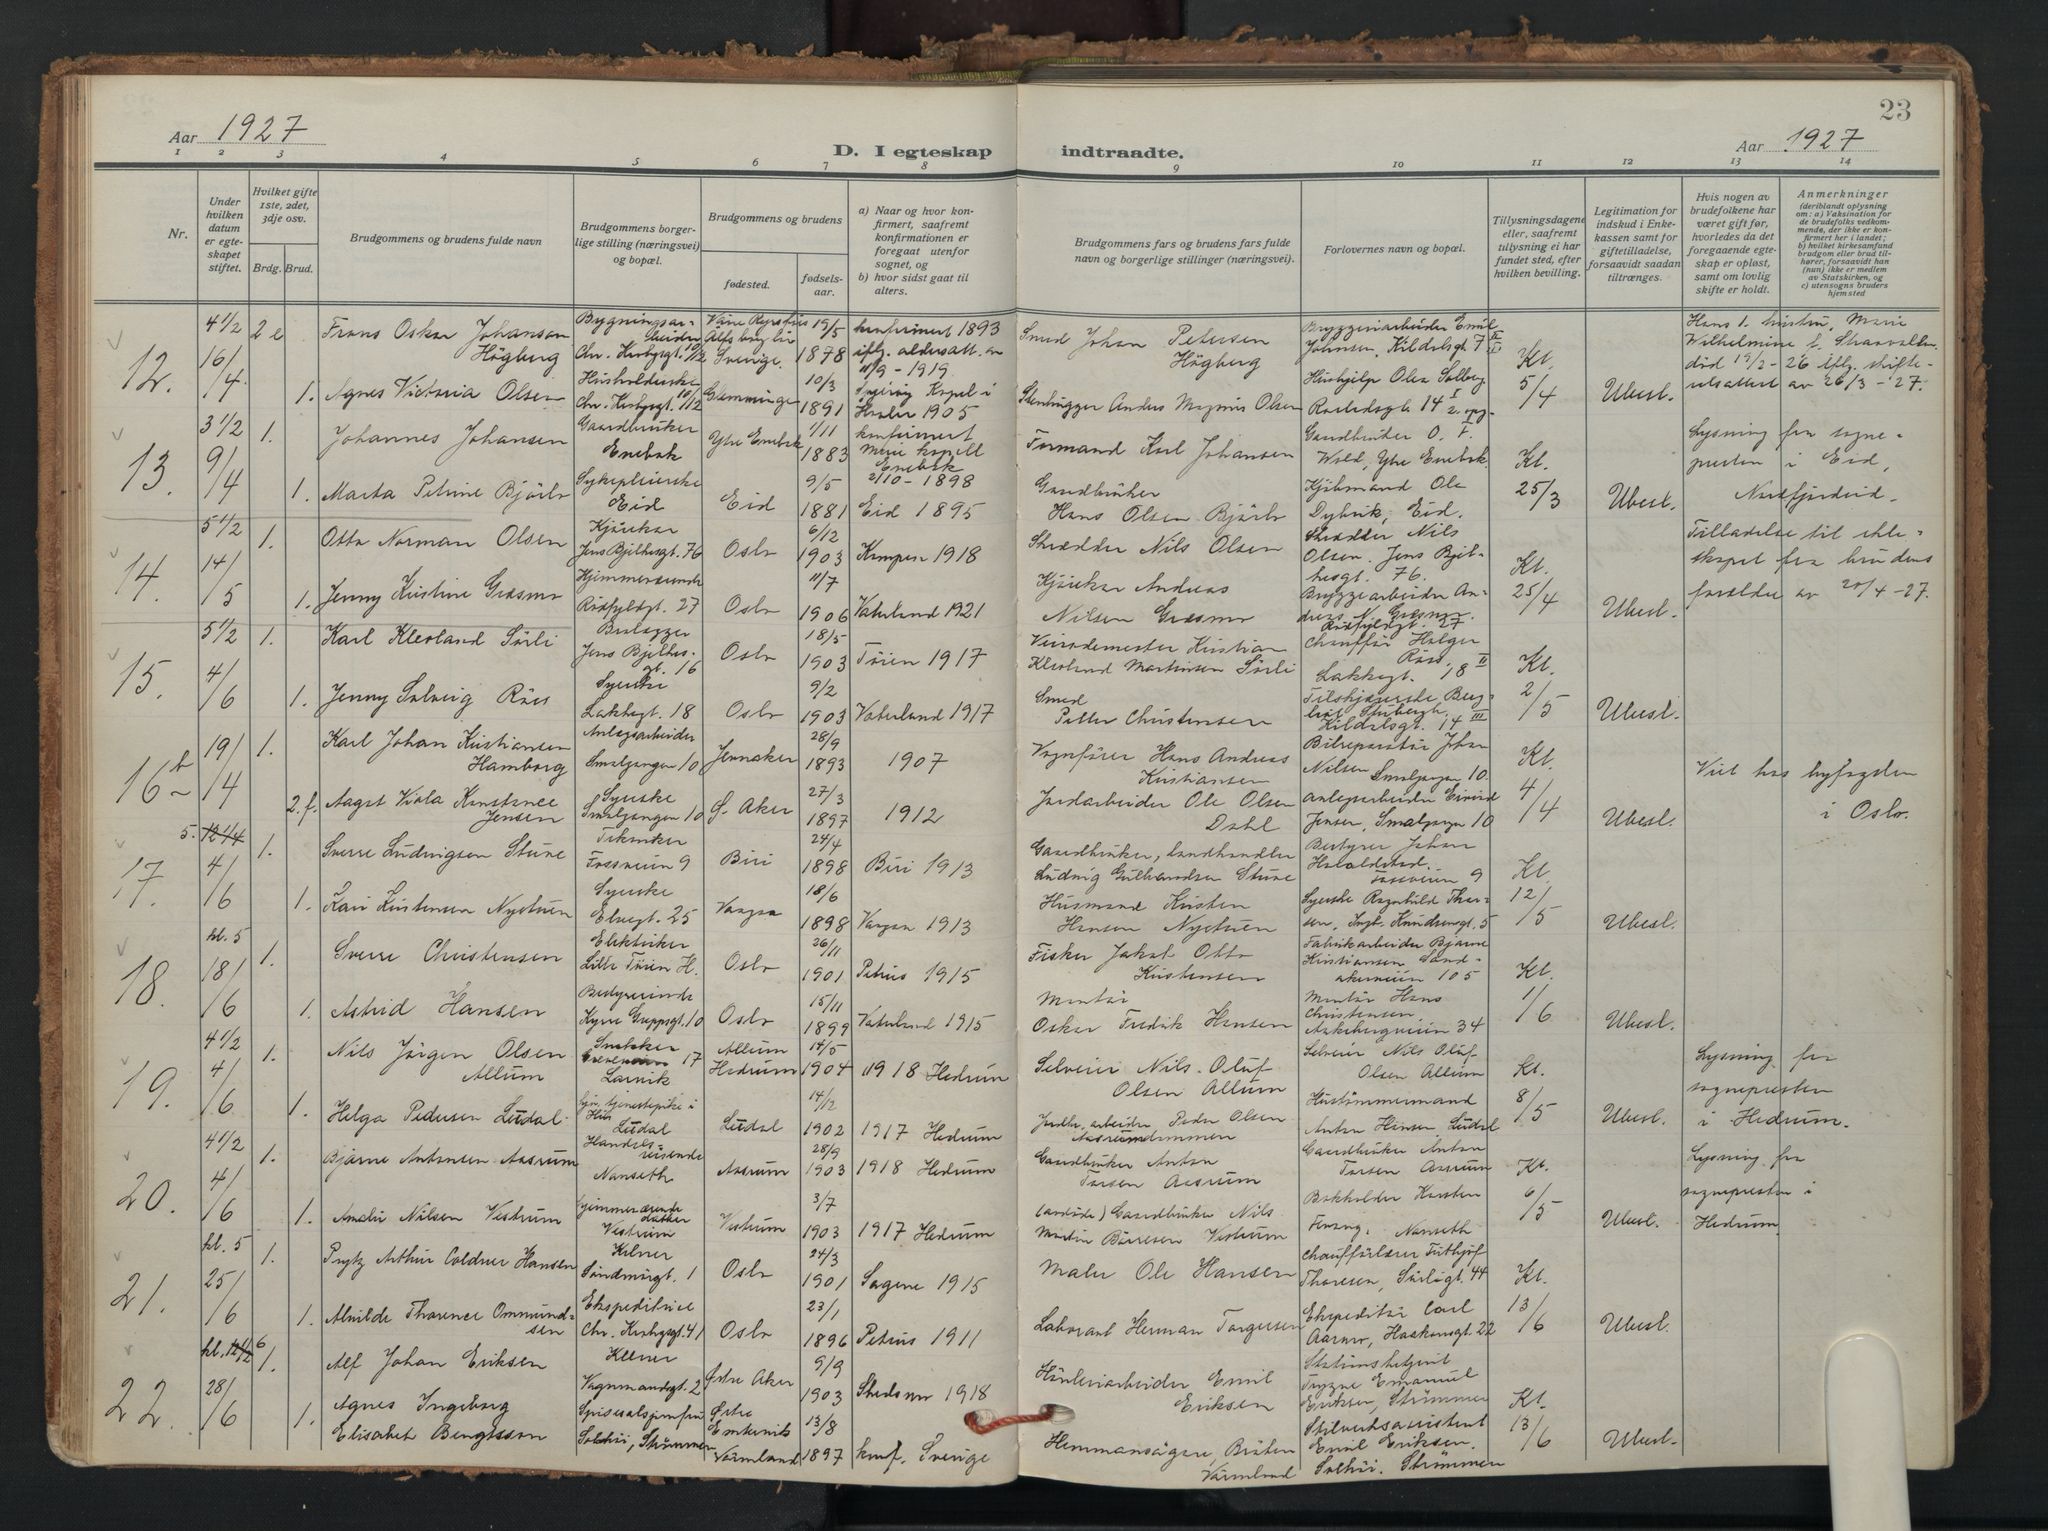 23
Aar 1927
D. I egteskap indtraadte.
Aar 1927
1 2 3 4 5 6 7 8 9 10 11 12 13 14
Nr.
Under hvilken datum er egteskapet stiftet.
Hvilket gifte 1ste, 2det, 3dje osv.
Brdg. Brud.
Brudgommens og brudens fulde navn
Brudgommens borgerlige stilling (næringsvei) og bopæl.
Brudgommens og brudens
fødested.
fødselsaar.
a) Naar og hvor konfirmert, saafremt konfirmationen er foregaat utenfor sognet, og
b) hvor sidst gaat til alters.
Brudgommens fars og brudens fars fulde navn og borgerlige stillinger (næringsvei).
Forlovernes navn og bopæl.
Tillysningsdagene eller, saafremt tillysning ei har fundet sted, efter hvilken bevilling.
Legitimation for indskud i Enkekassen samt for giftetilladelse, forsaavidt saadan tiltrænges.
Hvis nogen av brudefolkene har været gift før, hvorledes da det foregaaende egteskap er opløst, samt om lovlig skifte er holdt.
Anmerkninger
(deriblandt oplysning om: a) Vaksination for de brudefolks vedkommende, der ikke er konfirmert her i landet; b) hvilket kirkesamfund brudgom eller brud tilhører, forsaavidt han (hun) ikke er medlem av Statskirken, og c) utensogns bruders hjemsted
12. 4 1/2 16/4 2 e Frans Oskar Johanson Högberg Chr. Krohgsgt. 10/2 Sverige. 19/5 1878 konfirmert 1893 iflg. aldersatt. av 11/9 - 1919 Smed Johan Petersen Högberg Bryggeriarbeider Emil Johnsen, Kl. 5/4 Ubesl. Hans 1. hustru, Marie Wilhelmine død 19/2 - 26 iflg. skifteutsattest av 26/3 - 27.
1. Agnes Victoria Olsen Husholderske Chr. Krohgsgt. 10/2 Glemminge 10/3 1891 Kapel i 1905 Stenhugger Anders Magnus Olsen Hushjelp Olga Solberg
13. 3 1/2 9/4 1. Johannes Johansen Gaardbruker Enebak Ytre Enebak 1/11 1883 konfirmert Mari kapell Enebak 2/10 - 1898 Formand Karl Johansen Gaardbruker O. Wold, Ytre Enebak. Kl. 25/3 Ubesl. Lysning fra sognepresten i Eid, Nordfjordeid.
1. Marta Petrine Bjørlo Sykepleierske Eid Eid 9/5 1881 Eid 1895 Gaardbruker Hans Olsen Bjørlo Kjøbmand Ole Dybvik, Eid.
14. 5 1/2 14/5 1. Otto Norman Olsen Kjørekar Jens Bjelkesgt. 76 Oslo 6/12 1903 Kampen 1918 Skrædder Nils Olsen Skrædder Nils Olsen, Jens Bjelkesgt. 76. Kl. 25/4 Ubesl. Tilladelse til ekteskapet fra brudens forældre av 20/4 - 27.
1. Jenny Kristine Græsmo Hjemmeværende Rosfyldgt. 27 Oslo 11/7 1906 Vaterland 1921 Kjørekar Andreas Nilsen Græsmo Bryggearbeider Andreas N. Græsmo, 27
15. 5 1/2 4/6 1. Karl Klevland Sörli Jens Bjelkesgt. 16 Oslo 18/5 1903 Tøien 1917 Kristian Klevland Martinsen Sörli Chauffør Holger Röss, Lakkegt. 18 II Kl. 2/5 Ubesl.
1. Jenny Solveig Röss Syerske Lakkegt. 18 Oslo 9/2 1903 Vaterland 1917 Smed Petter Christensen Kildalsgt. 14 III
16 b 19/4 1. Karl Johan Kristiansen Hamborg Anlegsarbeider Smalgangen 10 Jevnaker 28/9 1893 1907 Vognfører Hans Andreas Kristiansen Bilreparatør Johan Nilsen Smalgangen 10. Kl. 4/4 Ubesl. Viet hos byfogden i Oslo.
2. f. Aagot Viola Konstanse Jensen Syerske Smalgangen 10 Ø. Aker 27/3 1897 1912 Jordarbeider Ole Olsen Dahl Anlegsarbeider Eivind Jensen, Smalgangen 10
17. 5. 4/6 1. Sverre Ludvigsen Stuve Tekniker Fossveien 9 Biri 24/4 1898 Biri 1913 Gaardbruker, landhandler Ludvig Gulbrandsen Stuve Bestyrer Johan Haraldstad. Fossveien 9 Kl. 12/5 Ubesl.
1. Kari Kristensen Nystuen Syerske Elvegt. 25 Vangsn 18/6 1898 Vangsn 1913 Husmand Kristen Hansen Nystuen Syerske Ragnhild Thorsen, Ingb. Knudsensgt. 5
18. kl. 5 18/6 1. Sverre Christensen Elektriker Lille Tøien H. Oslo 26/11 1901 Petrus 1915 Fisker Jakob Otto Kristensen Fabrikarbeider Bjarne Kristiansen Sandakerveien 105 Kl. 1/6 Ubesl.
1. Astrid Hansen Bestyrerinde Kyrre Greppsgt. 10 Oslo 15/11 1899 Vaterland 1915 Montør Oskar Fredrik Hansen Montør Hans Christensen, Aakebergveien 34
19. 4 1/2 4/6 1. Nils Jørgen Olsen Allum Snekker 17 Larvik Allum Hedrum 14/5 1904 1918 Hedrum Selveier Nils Oluf Olsen Allum Selveier Nils Oluf Olsen Allum Kl. 8/5 Ubesl. Lysning fra sognepresten i Hedrum.
1. Helga Pedersen Ludal tjenestepike i Ludal Ludal 14/12 1902 1917 Hedrum arbeider Peder Olsen Hustømmermand Anton Hansen Ludal
20. 4 1/2 4/6 1. Bjarne Antonsen Aasrum Handelsreisende Nanseth Aasrum 28/9 1903 1918 Hedrum Gaardbruker Anton Torsen Aasrum Gaardbruker Anton Torsen Aasrum Kl. 6/5 Ubesl. Lysning fra sognepresten i Hedrum
1. Amalie Nilsen Vestrum hjemmeværende datter Vestrum Vestrum 3/7 1903 1917 Hedrum (avdøde) Gaardbruker Nils Martin Börresen Vestrum Bokholder Karsten Nanseth
21. kl. 5 25/6 1. Prytz Arthur Coldner Hansen Kelner Søndmørgt. 1 Oslo 24/3 1901 Sagene 1915 Maler Ole Hansen Chaufførlærer Frithjof Thoresen, Sørligt. 44 Kl. 13/6 Ubesl.
1. Alvilde Thorence Ommundsen Ekspeditrice Chr. Krohgsgt. 41 Oslo 23/1 1896 Petrus 1911 Laborant Herman Torgersen Ekspeditør Carl Aarmo, Haakonsgt. 22
22. kl. 6 28/6 1. Alf Johan Eriksen Kelner Vognmandsgt. 2 Østre Aker 9/9 1903 Skedsmo 1918 Høvleriarbeider Emil Eriksen Stationsbetjent Trygve Emanuel Eriksen, Strømmen Kl. 13/6 Ubesl.
1. Agnes Ingeborg Elisabet Bengtsson Solhöi, Strømmen Östre Emtervik Värmland 13/8 1897 konf. Sverige Hemmansägare, Bråten Värmland Emil Eriksen. Solhöi. Strømmen